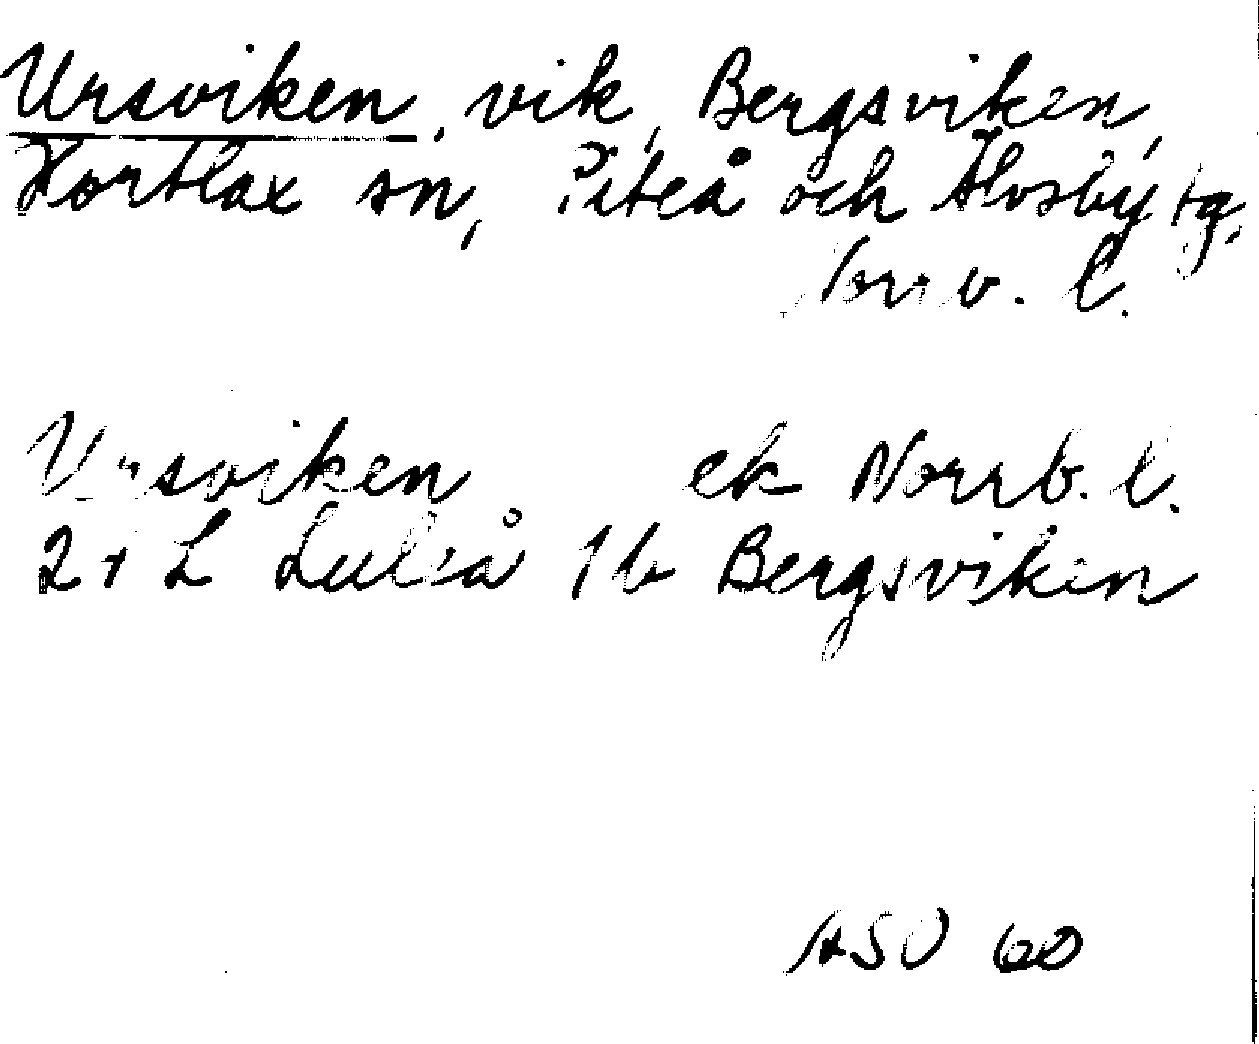 Ursviken, vik, Bergsviken,
Hortlax sn, Piteå och Älvsby tg,
Norrb. l.
Ursviken ek Norrb. l.
24 L Luleå 1b Bergsviken
ASO 60